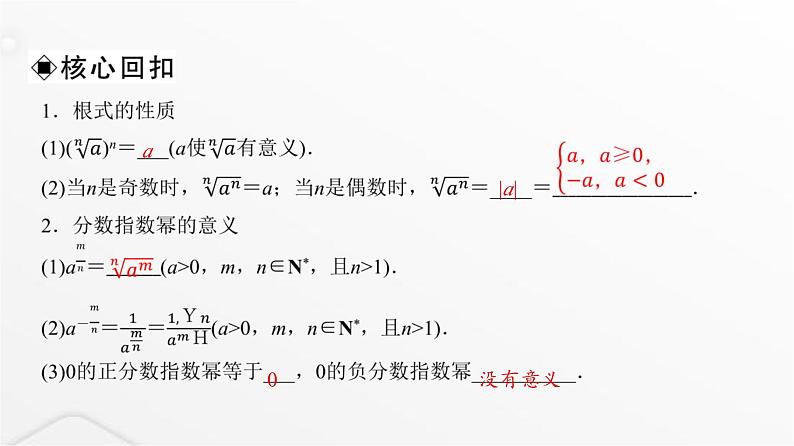 核心回扣
1．根式的性质
(1)(ⁿ√a)ⁿ＝a(a使ⁿ√a有意义)．
(2)当n是奇数时，ⁿ√(aⁿ)＝a；当n是偶数时，ⁿ√(aⁿ)＝|a|＝{a，a≥0，−a，a＜0．
2．分数指数幂的意义
(1)a^(m/n)＝ⁿ√(a^m)(a>0，m，n∈N*，且n>1)．
(2)a^(−m/n)＝1/a^(m/n)＝1,Ｙn/a^mＨ(a>0，m，n∈N*，且n>1)．
(3)0的正分数指数幂等于0，0的负分数指数幂没有意义．